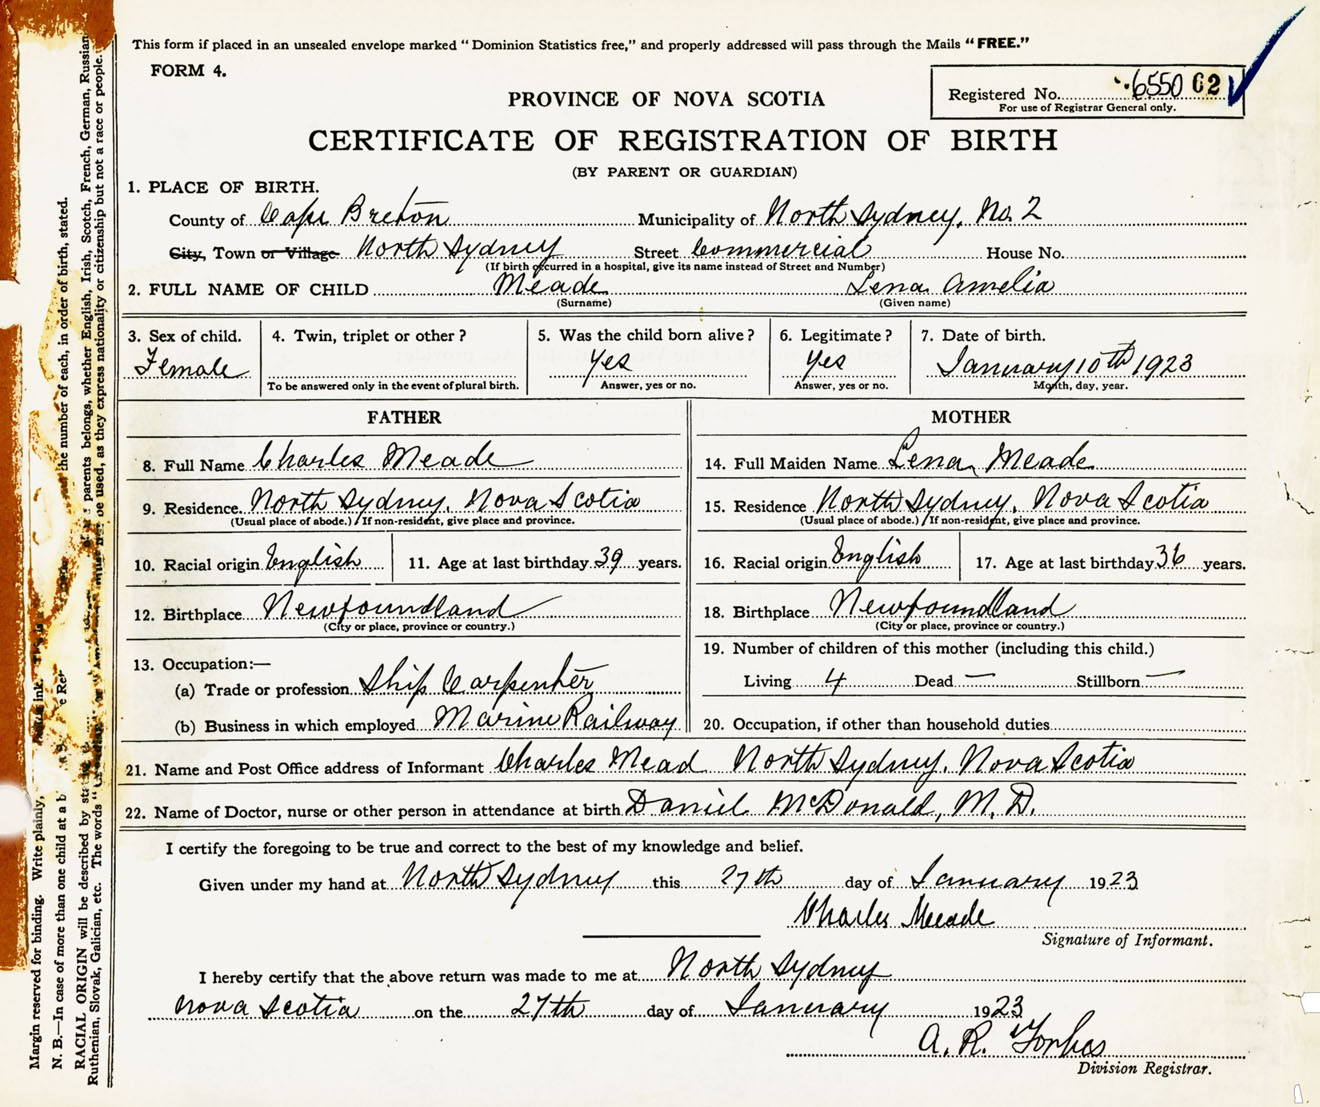 This form if placed in an unsealed envelope marked "Dominion Statistics free," and properly addressed will pass through the Mails "FREE."
FORM 4.
Registered No. 6550 02
For use of Registrar General only.
PROVINCE OF NOVA SCOTIA
CERTIFICATE OF REGISTRATION OF BIRTH
(BY PARENT OR GUARDIAN)
1. PLACE OF BIRTH.
County of Cape Breton Municipality of North Sydney, No. 2
City, Town or Village North Sydney Street Commercial House No.
(If birth occurred in a hospital, give its name instead of Street and Number)
2. FULL NAME OF CHILD Meade Lena Amelia
(Surname) (Given name)
3. Sex of child. 4. Twin, triplet or other? 5. Was the child born alive? 6. Legitimate? 7. Date of birth.
Female Yes Yes January 10th 1923
To be answered only in the event of plural birth. Answer, yes or no. Answer, yes or no. Month, day, year.
FATHER MOTHER
8. Full Name Charles Meade 14. Full Maiden Name Lena Meade
9. Residence North Sydney, Nova Scotia 15. Residence North Sydney, Nova Scotia
(Usual place of abode.) If non-resident, give place and province. (Usual place of abode.) If non-resident, give place and province.
10. Racial origin English 11. Age at last birthday 39 years. 16. Racial origin English 17. Age at last birthday 36 years.
12. Birthplace Newfoundland 18. Birthplace Newfoundland
(City or place, province or country.) (City or place, province or country.)
13. Occupation:— 19. Number of children of this mother (including this child.)
(a) Trade or profession Ship Carpenter Living 4 Dead — Stillborn —
(b) Business in which employed Marine Railway 20. Occupation, if other than household duties
21. Name and Post Office address of Informant Charles Mead North Sydney, Nova Scotia
22. Name of Doctor, nurse or other person in attendance at birth Daniel McDonald, M.D.
I certify the foregoing to be true and correct to the best of my knowledge and belief.
Given under my hand at North Sydney this 27th day of January 1923
Charles Meade
Signature of Informant.
I hereby certify that the above return was made to me at North Sydney
Nova Scotia on the 27th day of January 1923
A. R. Forbes
Division Registrar.
Margin reserved for binding. Write plainly, ink.
N. B.—In case of more than one child at a b the number of each, in order of birth, stated.
RACIAL ORIGIN will be described by parents belongs, whether English, Irish, Scotch, French, German, Russian,
Ruthenian, Slovak, Galician, etc. The words be used, as they express nationality or citizenship but not a race or people.